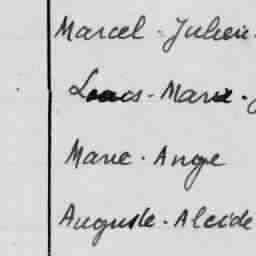 Marcel - Julien -
Louis - Marie -
Marie - Ange
Auguste - Alcide